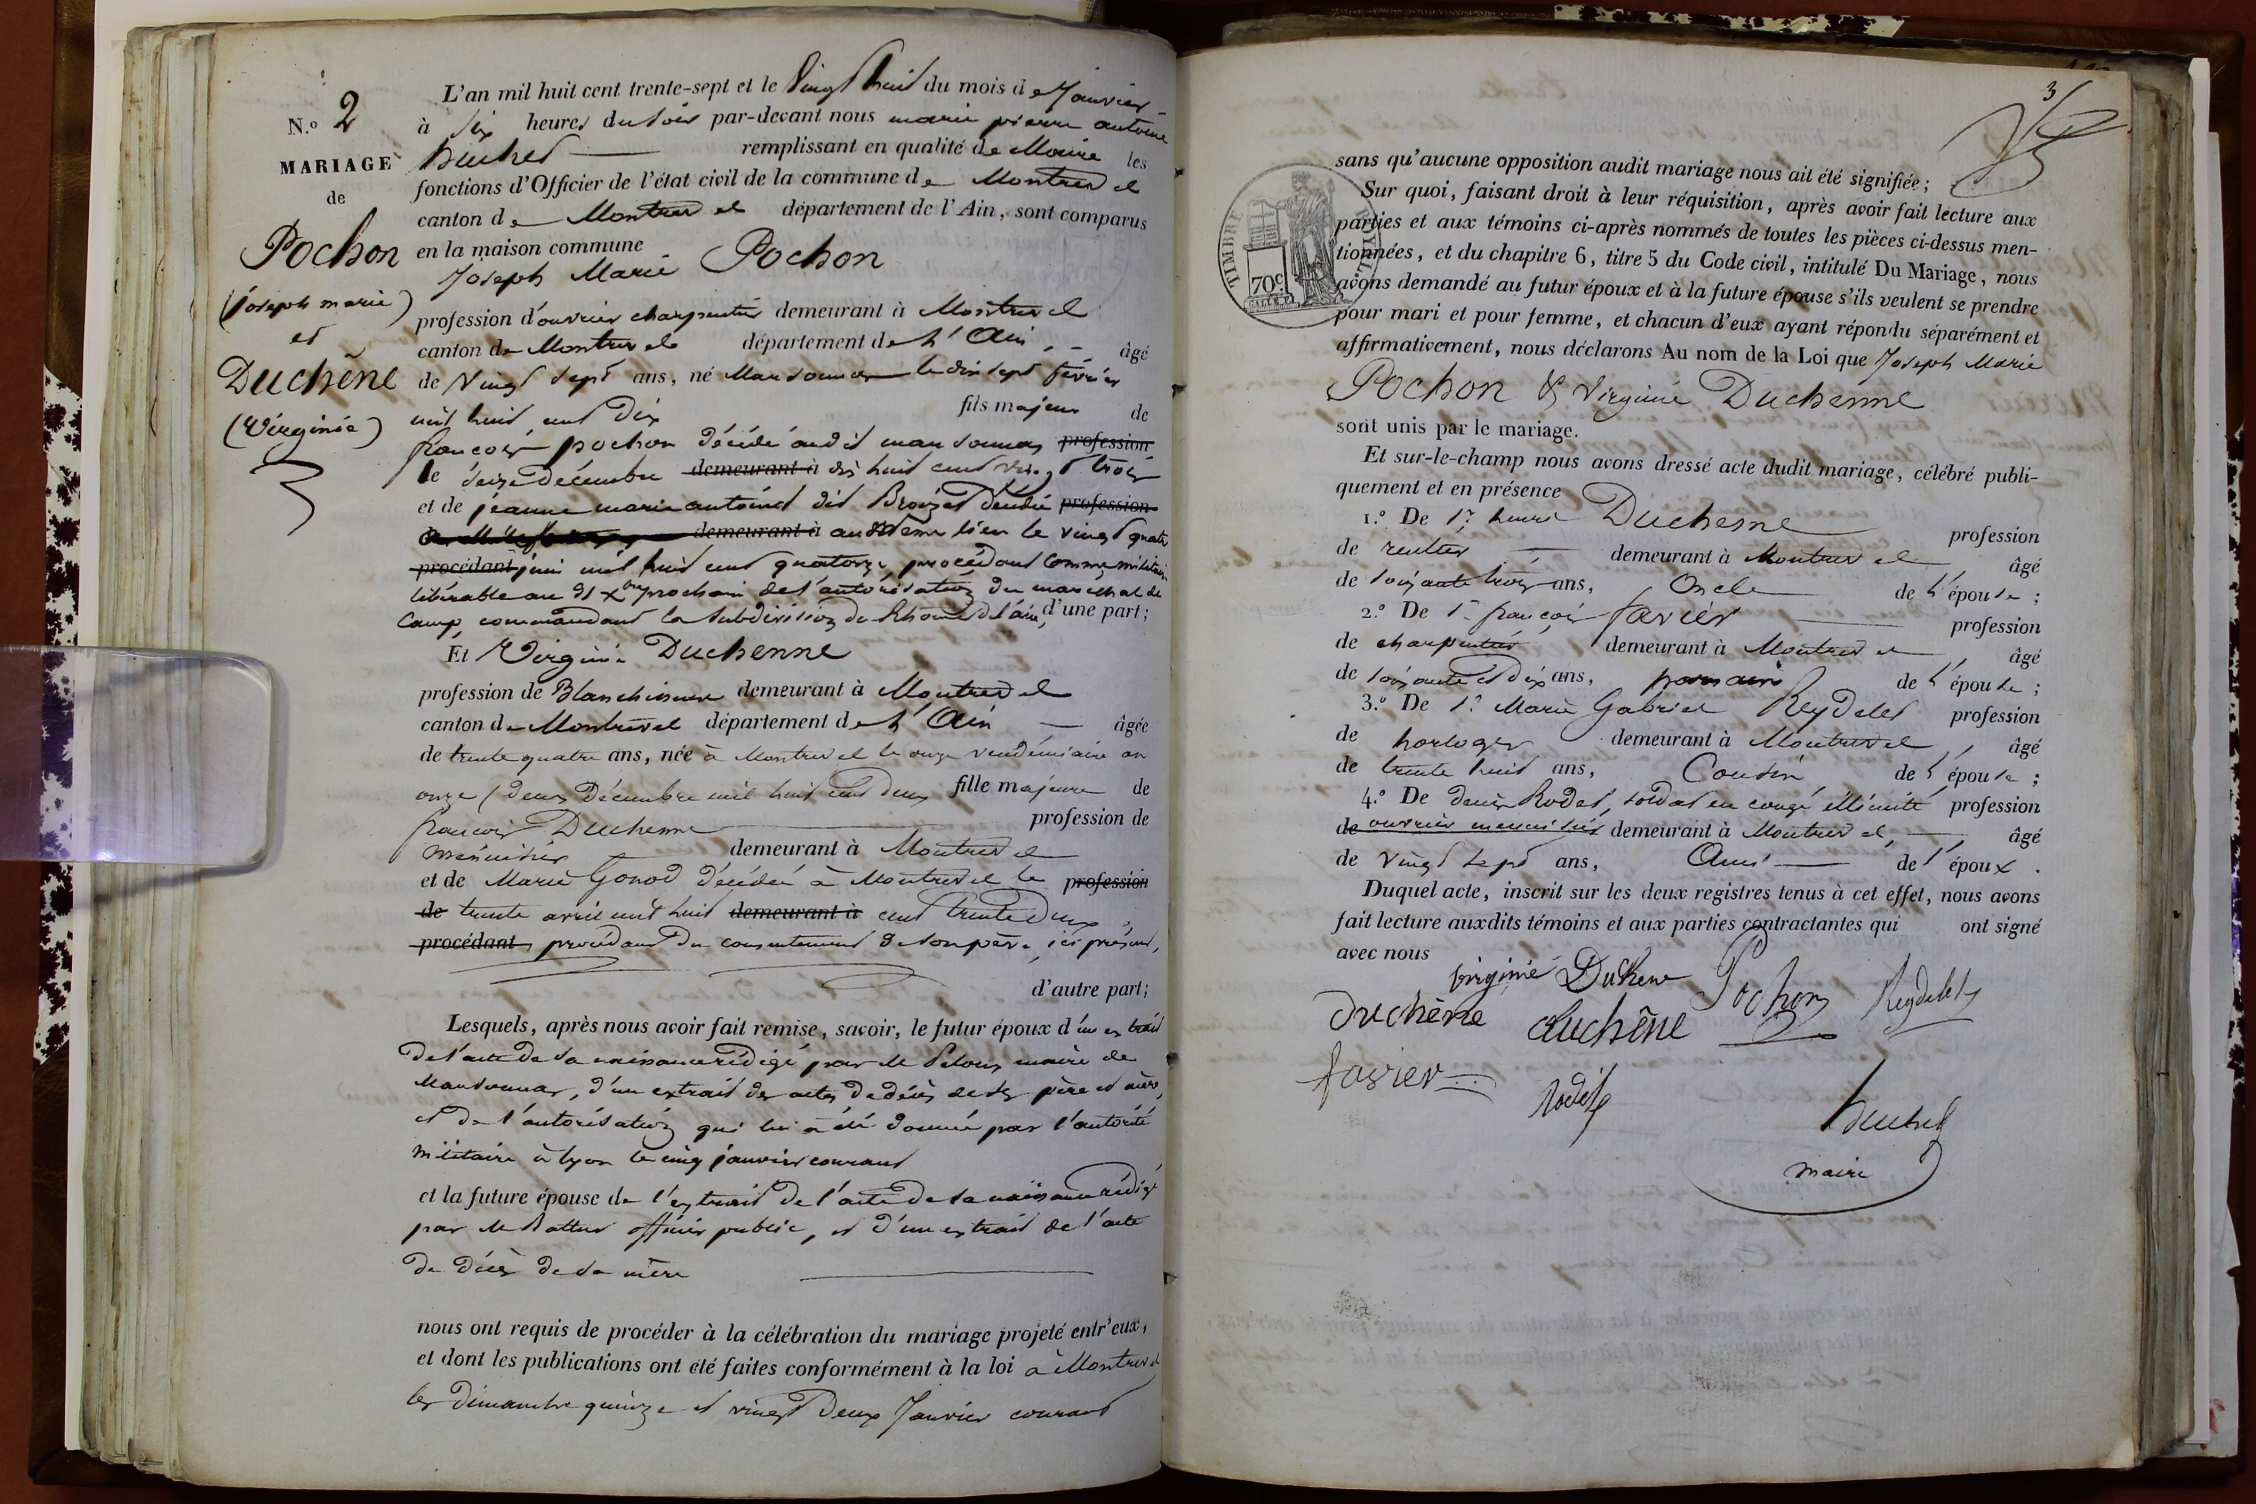 N.o 2
MARIAGE
de
Pochon
(joseph marie)
et
Duchêne
(Virginie)
L'an mil huit cent trente-sept et le vingt huit du mois de Janvier
à Six heures du soir par-devant nous marie pierre antoine
huchet remplissant en qualité de Maire les
fonctions d'Officier de l'état civil de la commune de Montrevel
canton de Montrevel département de l'Ain, sont comparus
en la maison commune
Joseph Marie Pochon
profession d'ouvrier charpentier demeurant à Montrevel
canton de Montrevel département de l'Ain, âgé
de vingt sept ans, né Mansonnas le dix sept février
mil huit cent dix fils majeur de
françois pochon décédé audit mansonnas profession
le seize décembre demeurant à dix huit cent vingt trois
et de jeanne marie antoinet dit Broizat décédée profession
demeurant à audit même lieu le vingt quatre
procédant juin mil huit cent quatorze, procédant comme militaire
libérable au 31 Xbre prochain de l'autorisation du maréchal de
Camp, commandant la subdivision du Rhône et l'ain, d'une part;
Et Virginie Duchenne
profession de Blanchisseuse demeurant à Montrevel
canton de Montrevel département de l'Ain âgée
de trente quatre ans, née à Montrevel le onze vendémiaire an
onze (deux Décembre mil huit cent deux fille majeure de
françois Duchenne profession de
menuisier demeurant à Montrevel
et de Marie Gonod décédée à Montrevel le profession
de trente avril mil huit demeurant à cent trente deux,
procédant procédant du consentement de son père, ici présent,
d'autre part;
Lesquels, après nous avoir fait remise, savoir, le futur époux d'un extrait
de l'acte de sa naissance rédigé par M Peloux maire de
Mansonnas, d'un extrait des actes de décès de ses père et mère,
et de l'autorisation qui lui a été donnée par l'autorité
militaire à lyon le cinq janvier courant
et la future épouse de l'extrait de l'acte de sa naissance rédigé
par M Rattur officier public, et d'un extrait de l'acte
de décès de sa mère
nous ont requis de procéder à la célébration du mariage projeté entr'eux,
et dont les publications ont été faites conformément à la loi à Montrevel
les dimanche quinze et vingt deux Janvier courant
3
TIMBRE ROYAL
70c
sans qu'aucune opposition audit mariage nous ait été signifiée;
Sur quoi, faisant droit à leur réquisition, après avoir fait lecture aux
parties et aux témoins ci-après nommés de toutes les pièces ci-dessus men-
tionnées, et du chapitre 6, titre 5 du Code civil, intitulé Du Mariage, nous
avons demandé au futur époux et à la future épouse s'ils veulent se prendre
pour mari et pour femme, et chacun d'eux ayant répondu séparément et
affirmativement, nous déclarons Au nom de la Loi que Joseph Marie
Pochon & Virginie Duchenne
sont unis par le mariage.
Et sur-le-champ nous avons dressé acte dudit mariage, célébré publi-
quement et en présence
1.o De Sr henri Duchesne profession
de rentier demeurant à Montrevel, âgé
de soixante trois ans, Oncle de l'épouse;
2.o De Sr françois favier profession
de charpentier demeurant à Montrevel, âgé
de soixante et dix ans, parrain de l'épouse;
3.o De Sr Marie Gabriel Reydelet profession
de horloger demeurant à Montrevel, âgé
de trente huit ans, Cousin de l'épouse;
4.o De denis Rodet, soldat en congé illimité profession
de ouvrier menuisier demeurant à Montrevel, âgé
de vingt sept ans, Ami de l'époux.
Duquel acte, inscrit sur les deux registres tenus à cet effet, nous avons
fait lecture auxdits témoins et aux parties contractantes qui ont signé
avec nous
virginie Duchene Pochon Reydelet
Duchêne duchêne
favier
Rodet
huchet
maire